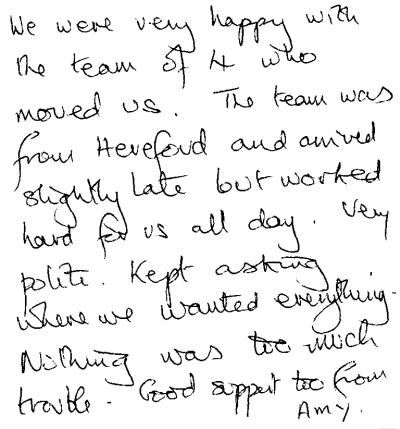 We were very happy with
the team of 4 who
moved us. The team was
from Hereford and arrived
slightly late but worked
hard for us all day. Very
polite. Kept asking
where we wanted everything.
Nothing was too much
trouble. Good support too from
Amy.